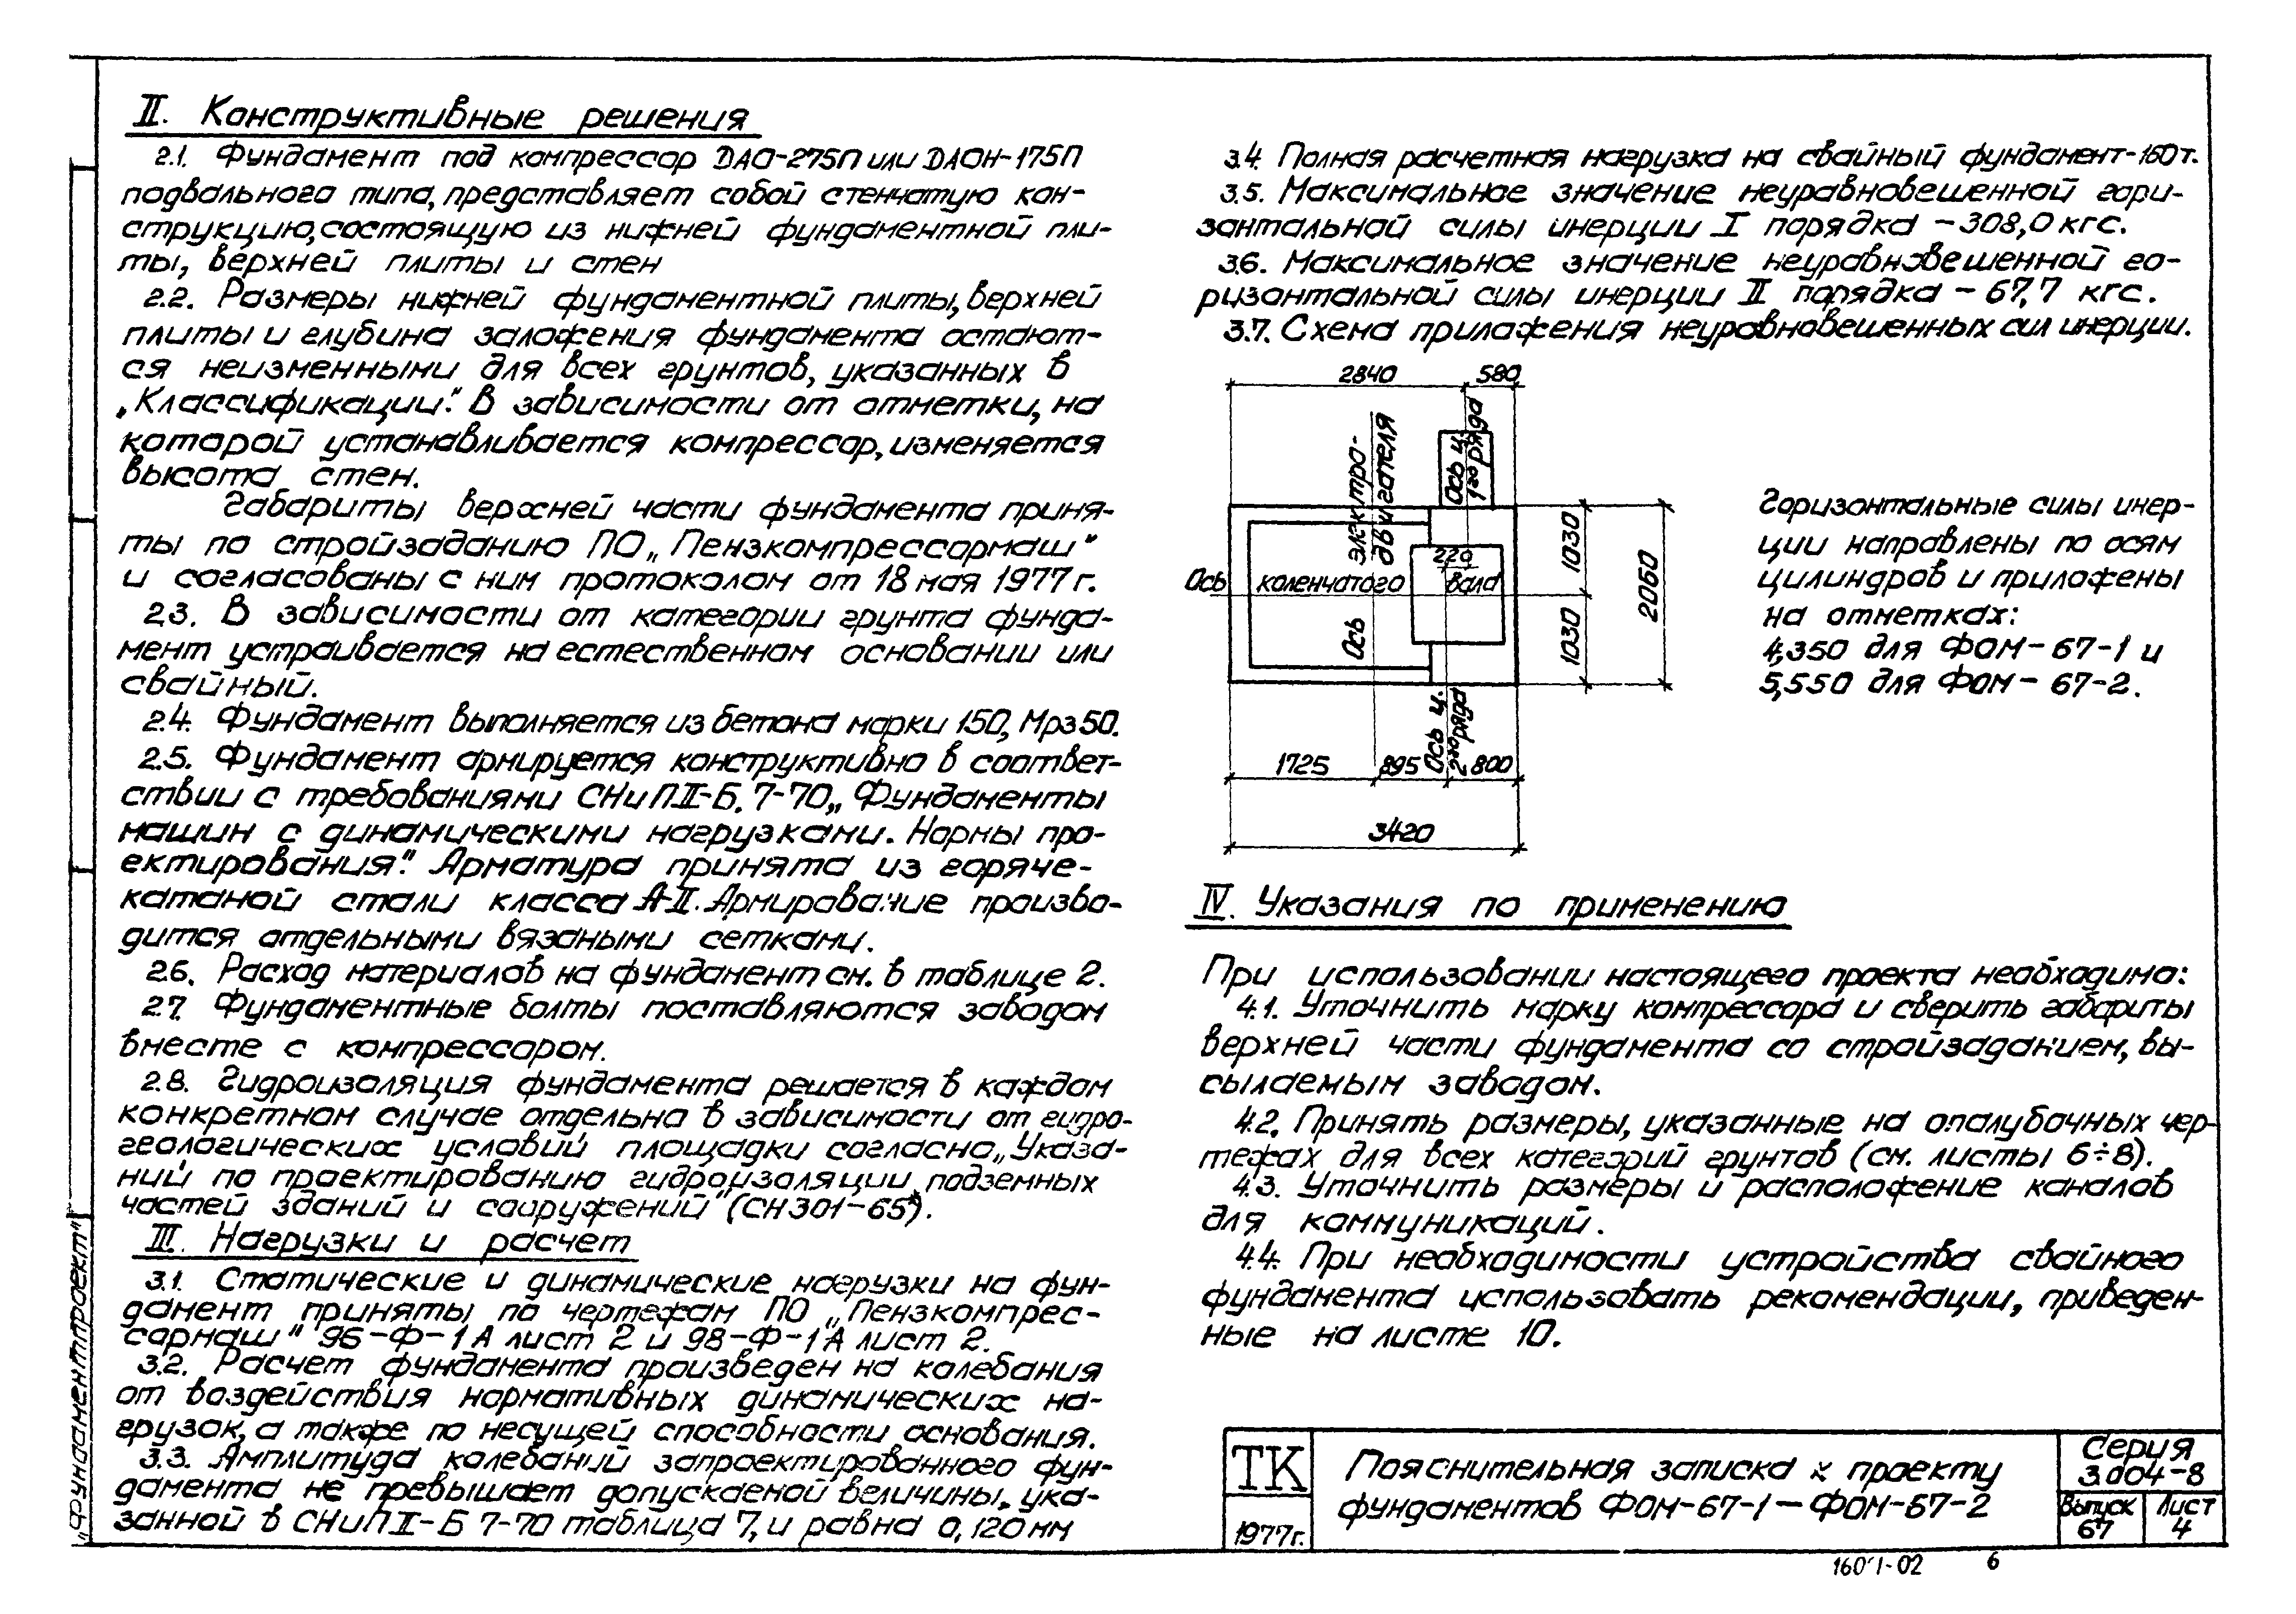 II. Конструктивные решения
2.1. Фундамент под компрессор ДАО-275П или ДАОН-175П
подвального типа, представляет собой стенчатую кон-
струкцию, состоящую из нижней фундаментной пли-
ты, верхней плиты и стен
2.2. Размеры нижней фундаментной плиты, верхней
плиты и глубина заложения фундамента остают-
ся неизменными для всех грунтов, указанных в
„Классификации". В зависимости от отметки, на
которой устанавливается компрессор, изменяется
высота стен.
Габариты верхней части фундамента приня-
ты по стройзаданию ПО „Пензкомпрессормаш"
и согласованы с ним протоколом от 18 мая 1977г.
2.3. В зависимости от категории грунта фунда-
мент устраивается на естественном основании или
свайный.
2.4. Фундамент выполняется из бетона марки 150, Мрз 50.
2.5. Фундамент армируется конструктивно в соответ-
ствии с требованиями СНиП II-Б. 7-70 „Фундаменты
машин с динамическими нагрузками. Нормы про-
ектирования". Арматура принята из горяче-
катаной стали класса А-II. Армирование произво-
дится отдельными вязаными сетками.
2.6. Расход материалов на фундамент см. в таблице 2.
2.7. Фундаментные болты поставляются заводом
вместе с компрессором.
2.8. Гидроизоляция фундамента решается в каждом
конкретном случае отдельно в зависимости от гидро-
геологических условий площадки согласно „Указа-
ний по проектированию гидроизоляции подземных
частей зданий и сооружений" (СН 301-65*).
III. Нагрузки и расчет
3.1. Статические и динамические нагрузки на фун-
дамент приняты по чертежам ПО „Пензкомпрес-
сормаш" 96-Ф-1А лист 2 и 98-Ф-1А лист 2.
3.2. Расчет фундамента произведен на колебания
от воздействия нормативных динамических на-
грузок, а также по несущей способности основания.
3.3. Амплитуда колебаний запроектированного фун-
дамента не превышает допускаемой величины, ука-
занной в СНиП II-Б 7-70 таблица 7, и равна 0,120 мм
3.4. Полная расчетная нагрузка на свайный фундамент-160т.
3.5. Максимальное значение неуравновешенной гори-
зонтальной силы инерции I порядка - 308,0 кгс.
3.6. Максимальное значение неуравновешенной го-
ризонтальной силы инерции II порядка - 67,7 кгс.
3.7. Схема приложения неуравновешенных сил инерции.
2840
580
Ось электро-
двигателя
Ось ц.
1го ряда
220
Ось коленчатого вала
1030
1030
2060
Ось ц.
2го ряда
1725
895
800
3420
Горизонтальные силы инер-
ции направлены по осям
цилиндров и приложены
на отметках:
4,350 для ФОМ-67-1 и
5,550 для ФОМ-67-2.
IV. Указания по применению
При использовании настоящего проекта необходимо:
4.1. Уточнить марку компрессора и сверить габариты
верхней части фундамента со стройзаданием, вы-
сылаемым заводом.
4.2. Принять размеры, указанные на опалубочных чер-
тежах для всех категорий грунтов (см. листы 6÷8).
4.3. Уточнить размеры и расположение каналов
для коммуникаций.
4.4. При необходимости устройства свайного
фундамента использовать рекомендации, приведен-
ные на листе 10.
„Фундаментпроект"
ТК
1977г.
Пояснительная записка к проекту
фундаментов ФОМ-67-1 — ФОМ-67-2
Серия
3.004-8
Выпуск
67
Лист
4
6